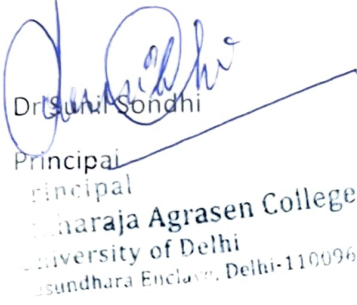 Dr Sunil Sondhi
Principal
rincipal
haraja Agrasen College
iversity of Delhi
sundhara Enclave, Delhi-110096